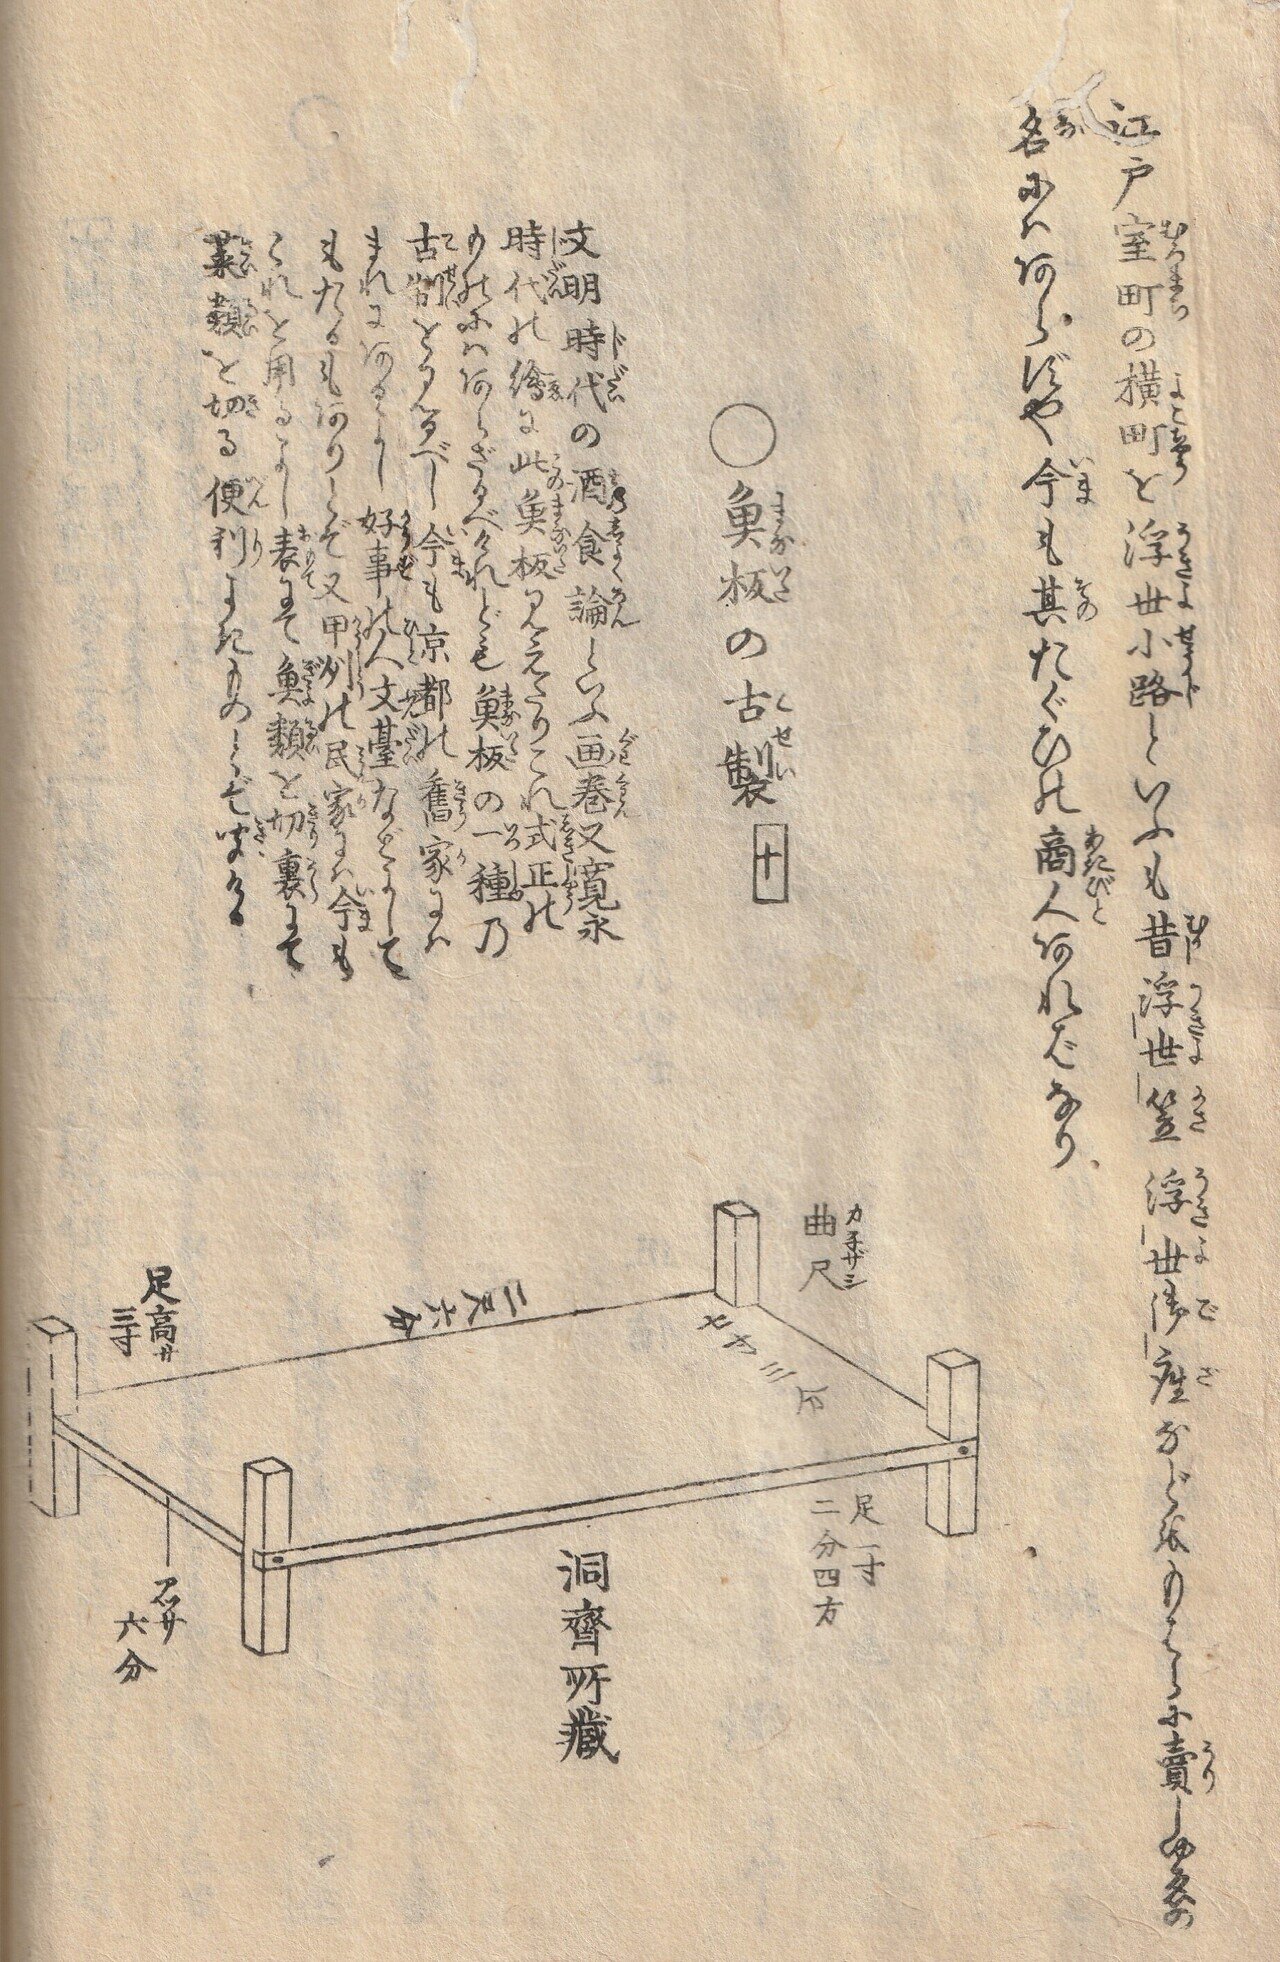 江戸室町の横町を浮世小路といふも昔浮世笠浮世御座などをもはらに賣しゆゑの
名にはあらずや今も其たぐひの商人あればなり
○魚板の古製 十
文明時代の酒食論といふ画巻又寛永
時代の繪に此魚板見えたりこれ式正の
ものにはあらざるべけれども魚板の一種乃
古制とみるべし今も京都の舊家には
まれにあるよし好事の人文臺などにして
もたるもありとぞ又甲州の民家には今も
これを用るよし表にて魚類を切裏にて
菜類を切る便利よきものとぞ聞ける
曲尺
カネザシ
七寸三分
二尺六分
足高サ
三寸
足一寸
二分四方
アツサ
六分
洞齋所藏